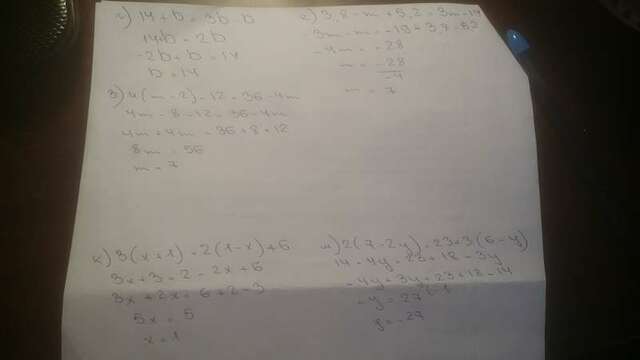 г) 14 + b = 3b - b
14+b = 2b
-2b + b = 14
b = 14
е) 3,8 - m + 5,2 = 3m - 19
m = -28
-4
m = 7
з) 4(m - 2) - 12 = 36 - 4m
4m - 8 - 12 = 36 - 4m
4m + 4m = 36 + 8 + 12
8m = 56
m = 7
к) 3(x+1) = 2(1-x)+6
3x+3 = 2 - 2x + 6
3x + 2x = 6 + 2 - 3
5x = 5
x = 1
м) 2(7-2y) = 23+3(6-y)
14 - 4y = 23 + 18 - 3y
-4y + 3y = 23 + 18 - 14
-y = 27
y = -27